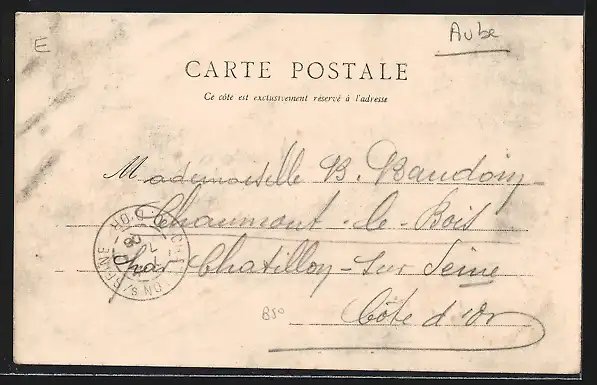 E
Aube
CARTE POSTALE
Ce côte est exclusivement réservé à l'adresse
Mademoiselle B. Baudoin
Chaumont-le-Bois
par Chatillon-sur Seine
B50
Côte d'Or